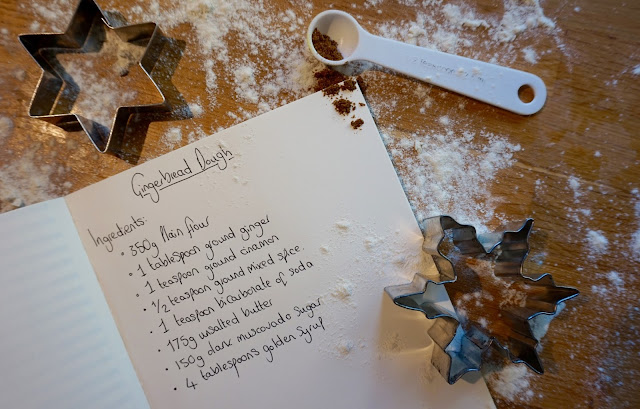 Gingerbread Dough
Ingredients:
• 350g Plain flour
• 1 tablespoon ground ginger
• 1 teaspoon ground cinamon
• 1/2 teaspoon ground mixed spice.
• 1 teaspoon bicarbonate of soda
• 175g unsalted butter
• 150g dark muscavado sugar
• 4 tablespoons golden syrup